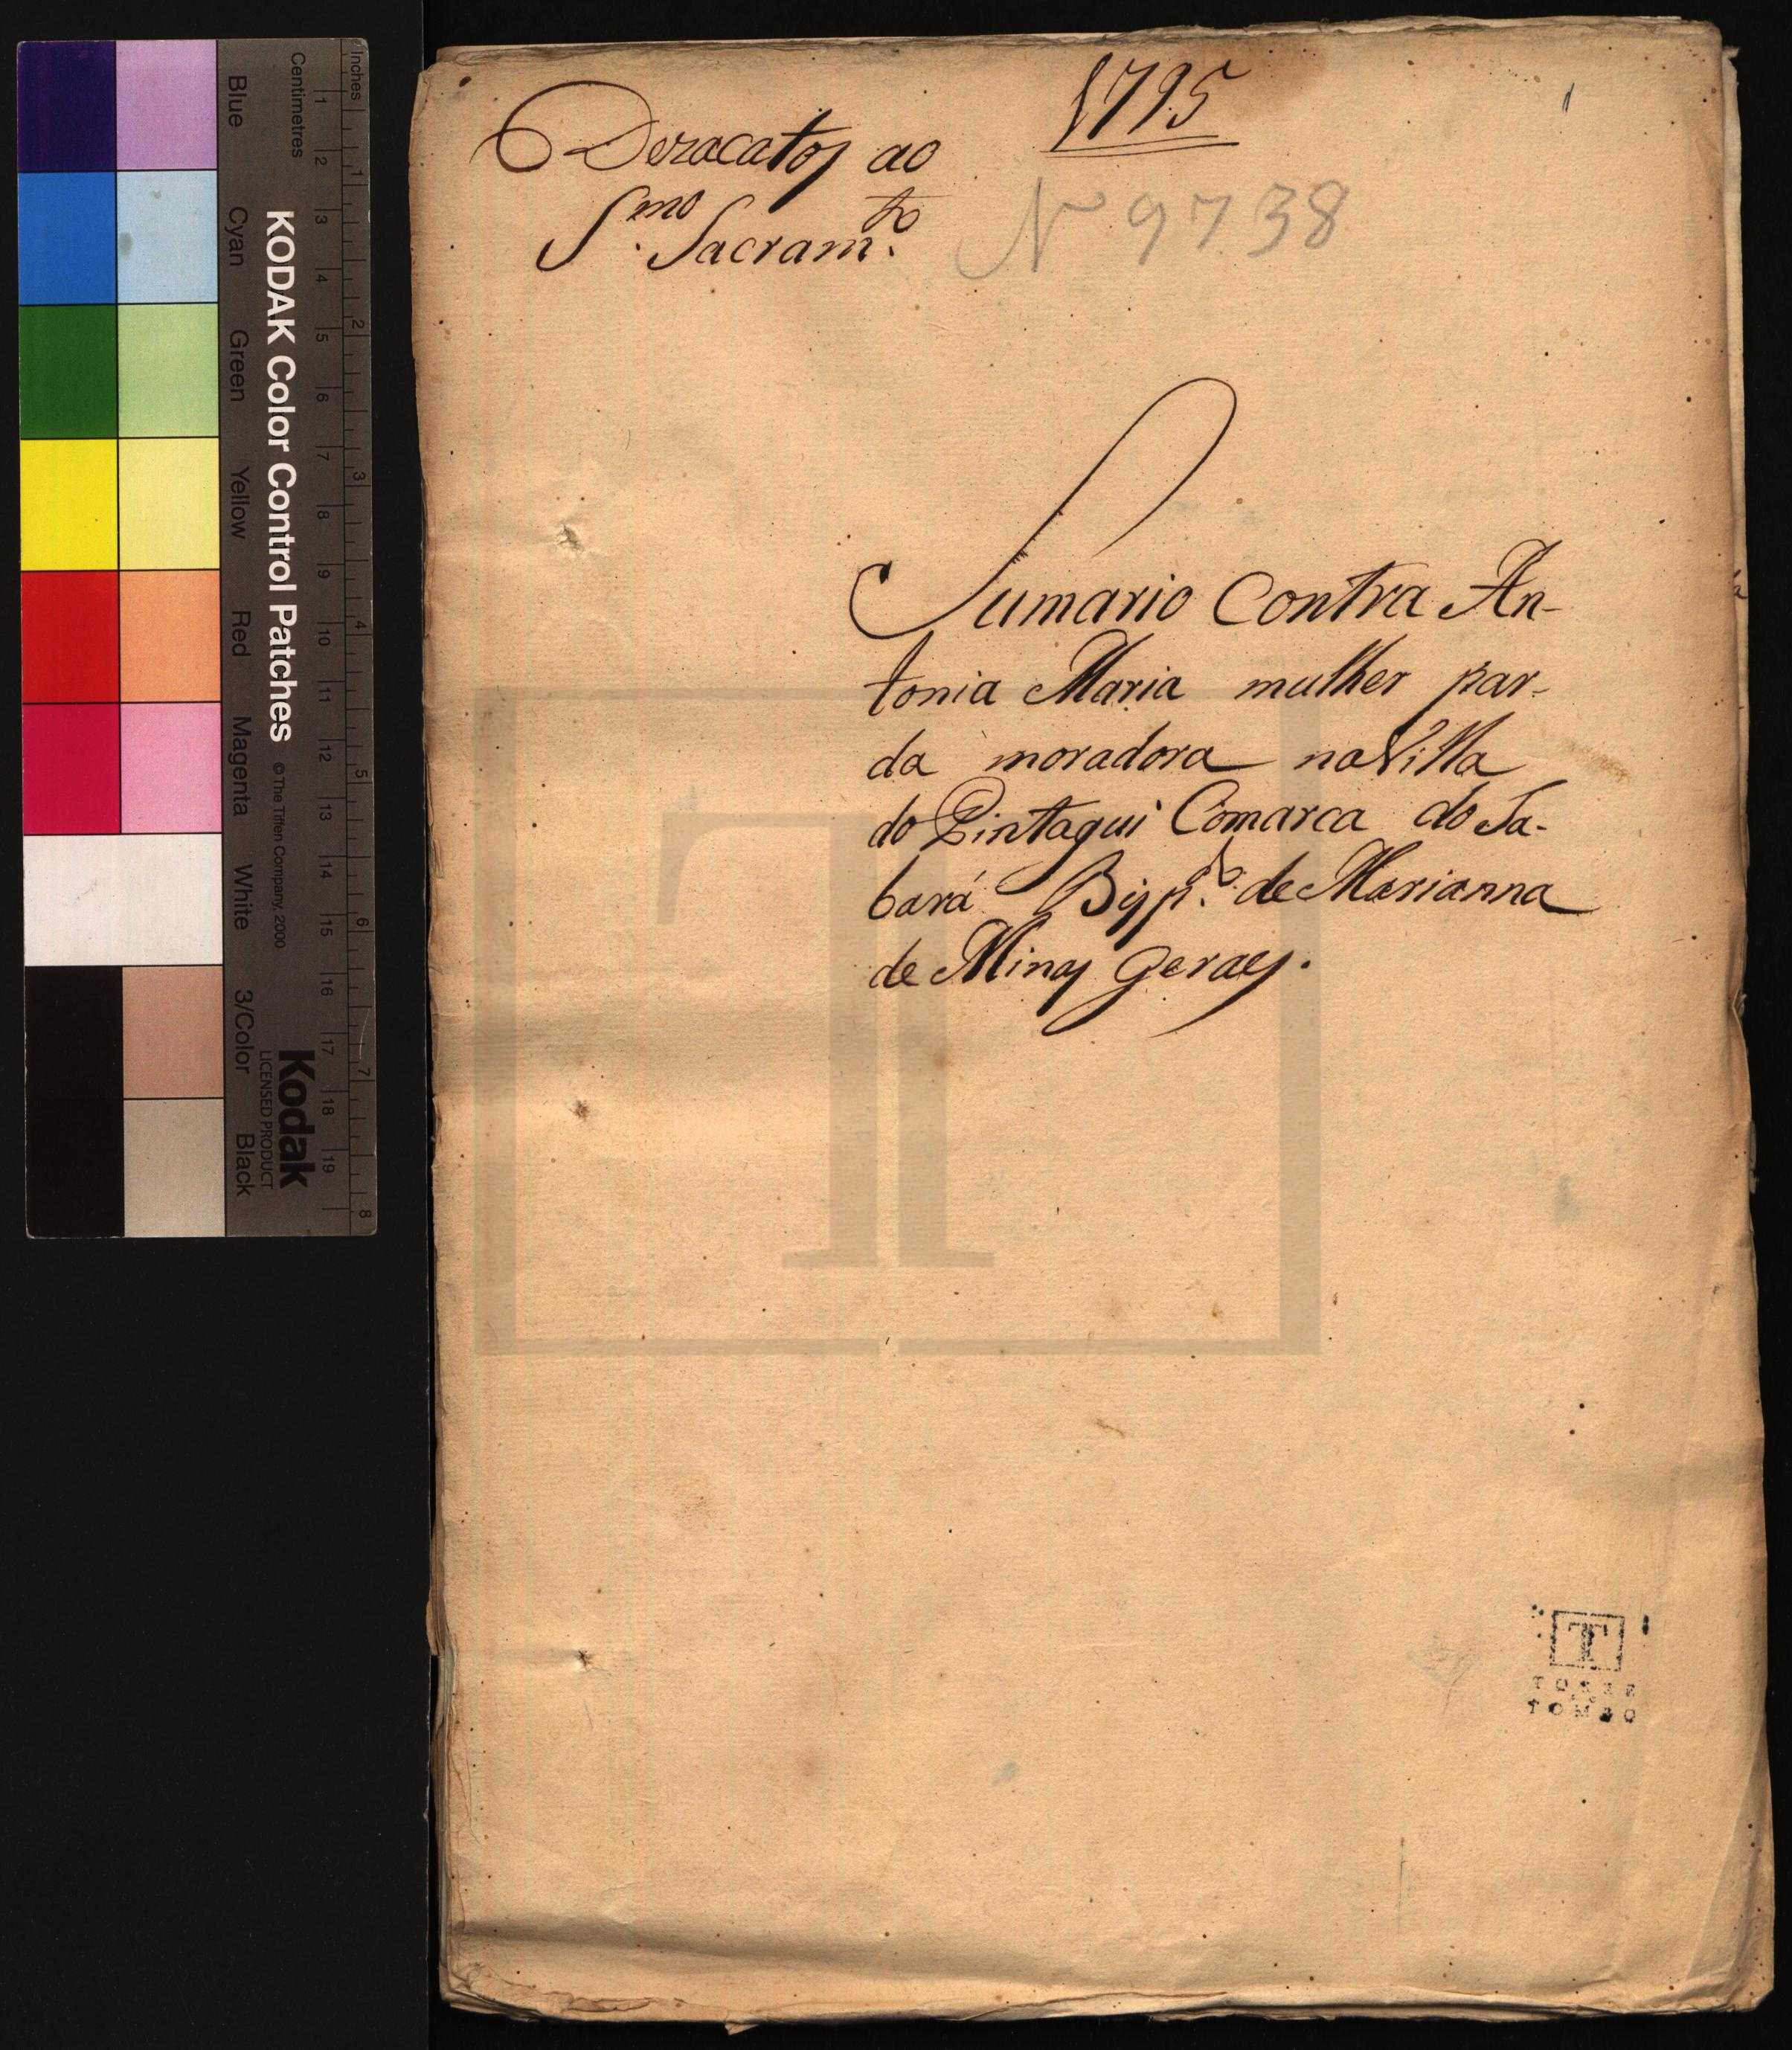 1795
1
Dezacatos ao
S.mo Sacram.to
N 9738
Sumario Contra An-
tonia Maria mulher par-
da moradora na Villa
do Pintagui Comarca do Sa-
bará Bisp.do de Marianna
de Minas Geraes.
T
TORRE
DO
TOMBO
Inches
Centimetres
1 2 3 4 5 6 7 8
1 2 3 4 5 6 7 8 9 10 11 12 13 14 15 16 17 18 19
KODAK Color Control Patches © The Tiffen Company, 2000
Kodak
LICENSED PRODUCT
Blue Cyan Green Yellow Red Magenta White 3/Color Black